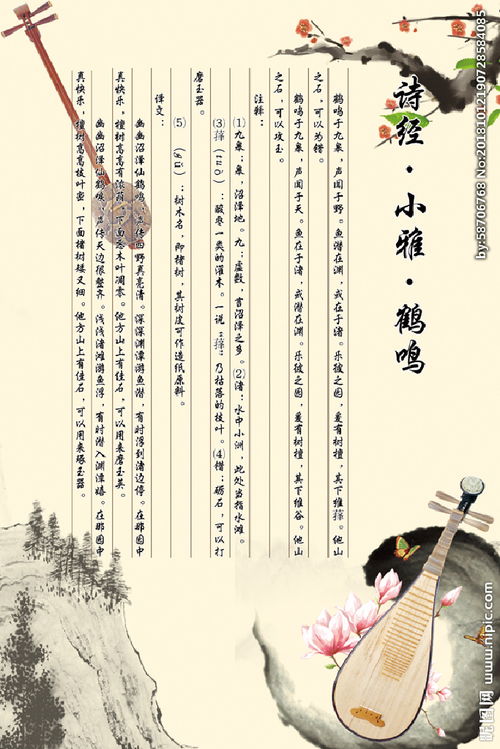 诗经·小雅·鹤鸣
鹤鸣于九皋，声闻于野。鱼潜在渊，或在于渚。乐彼之园，爰有树檀，其下维萚。他山
之石，可以为错。
鹤鸣于九皋，声闻于天。鱼在于渚，或潜在渊。乐彼之园，爰有树檀，其下维谷。他山
之石，可以攻玉。
注释：
⑴九皋：皋，沼泽地。九：虚数，首沼泽之多。⑵渚：水中小洲，此处当指水滩。
⑶萚（tuò）：酸枣一类的灌木。一说“萚”乃枯落的枝叶。⑷错：砺石，可以打
磨玉器。
⑸（gǔ）：树木名，即楮树，其树皮可作造纸原料。
译文：
幽幽沼泽仙鹤鸣，声传四野真亮清。深深渊潭游鱼潜，有时浮到渚边停。在那园中
真快乐，檀树高高有浓荫，下面落木叶凋零。他方山上有佳石，可以用来磨玉英。
幽幽沼泽仙鹤唳，声传天边很整齐。浅浅渚滩游鱼浮，有时潜入渊潭嬉。在那园中
真快乐，檀树高高枝叶密，下面楮树矮又细。他方山上有佳石，可以用来琢玉器。
by:58706768 No:20181012190728584085
昵图网 www.nipic.com